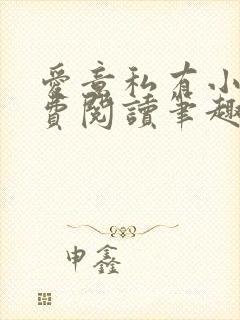 愛意私有小
費閱讀筆趣
申鑫